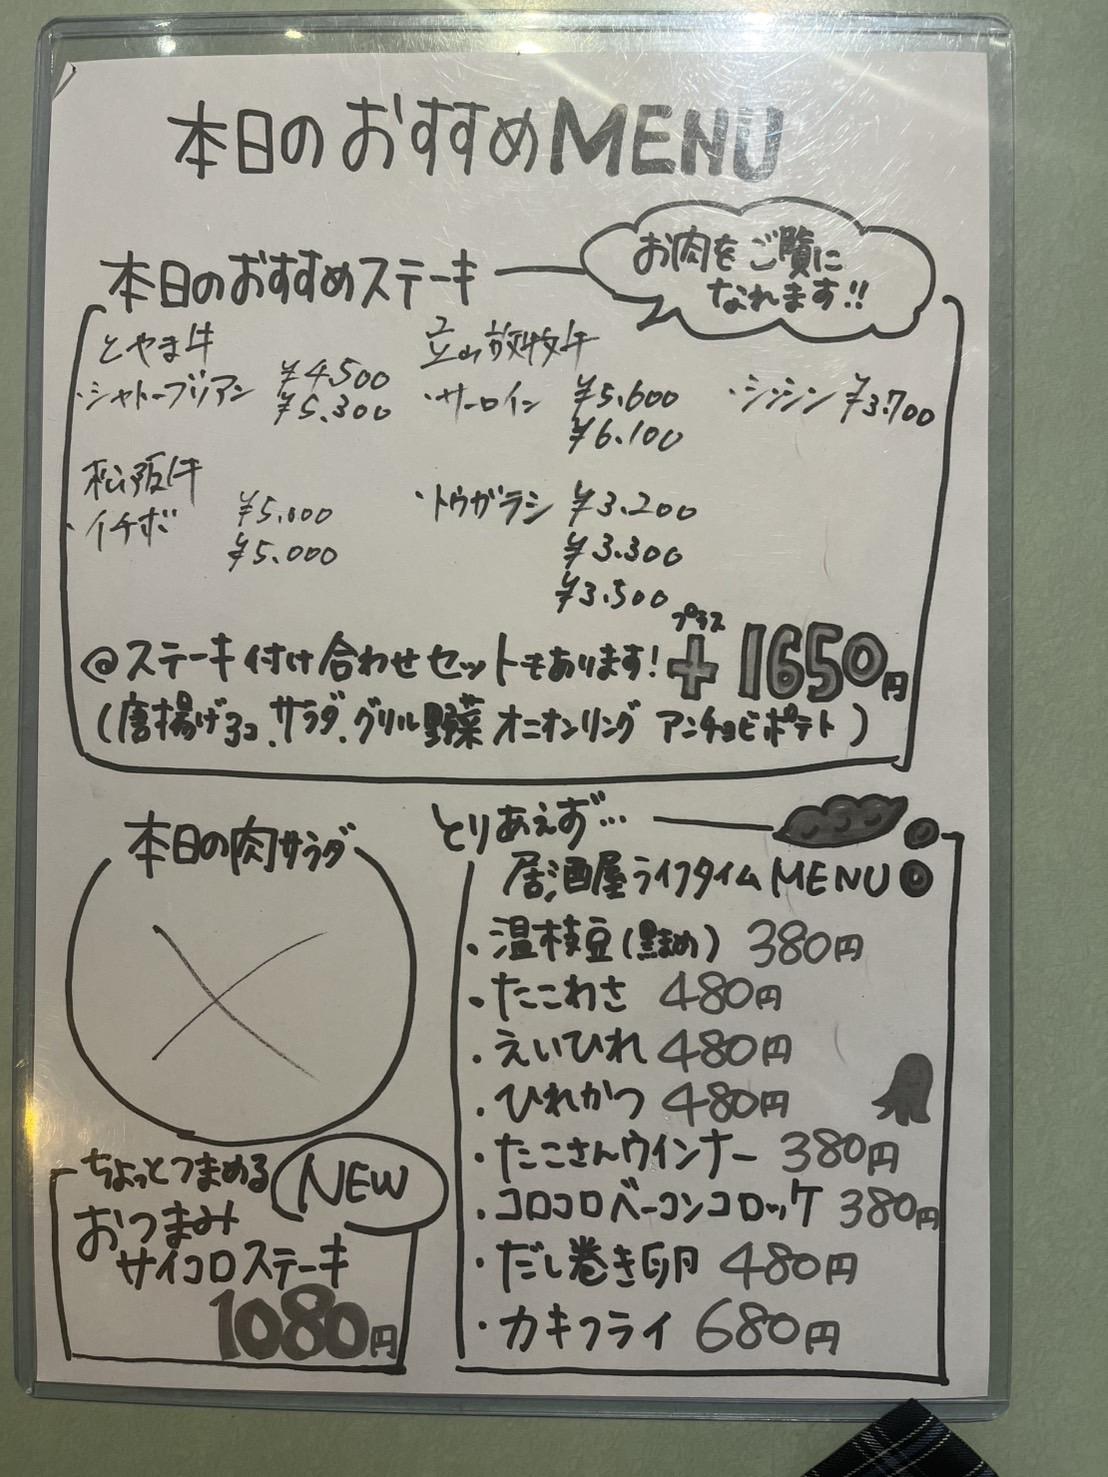 本日のおすすめMENU
お肉をご覧に
なれます!!
本日のおすすめステーキ
とやま牛
・シャトーブリアン ¥4.500
¥5.300
立山放牧牛
・サーロイン ¥5.600
¥6.100
・シンシン ¥3.700
松阪牛
・イチボ ¥5.000
¥5.000
・トウガラシ ¥3.200
¥3.300
¥3.500
@ステーキ付け合わせセットもあります! プラス + 1650円
(唐揚げ3コ、サラダ、グリル野菜 オニオンリング アンチョビポテト)
本日の肉サラダ
ちょっとつまめる NEW
おつまみ
サイコロステーキ
1080円
とりあえず…
居酒屋ライフタイムMENU
・温枝豆(黒まめ) 380円
・たこわさ 480円
・えいひれ 480円
・ひれかつ 480円
・たこさんウインナー 380円
・コロコロベーコンコロッケ 380円
・だし巻き卵 480円
・カキフライ 680円